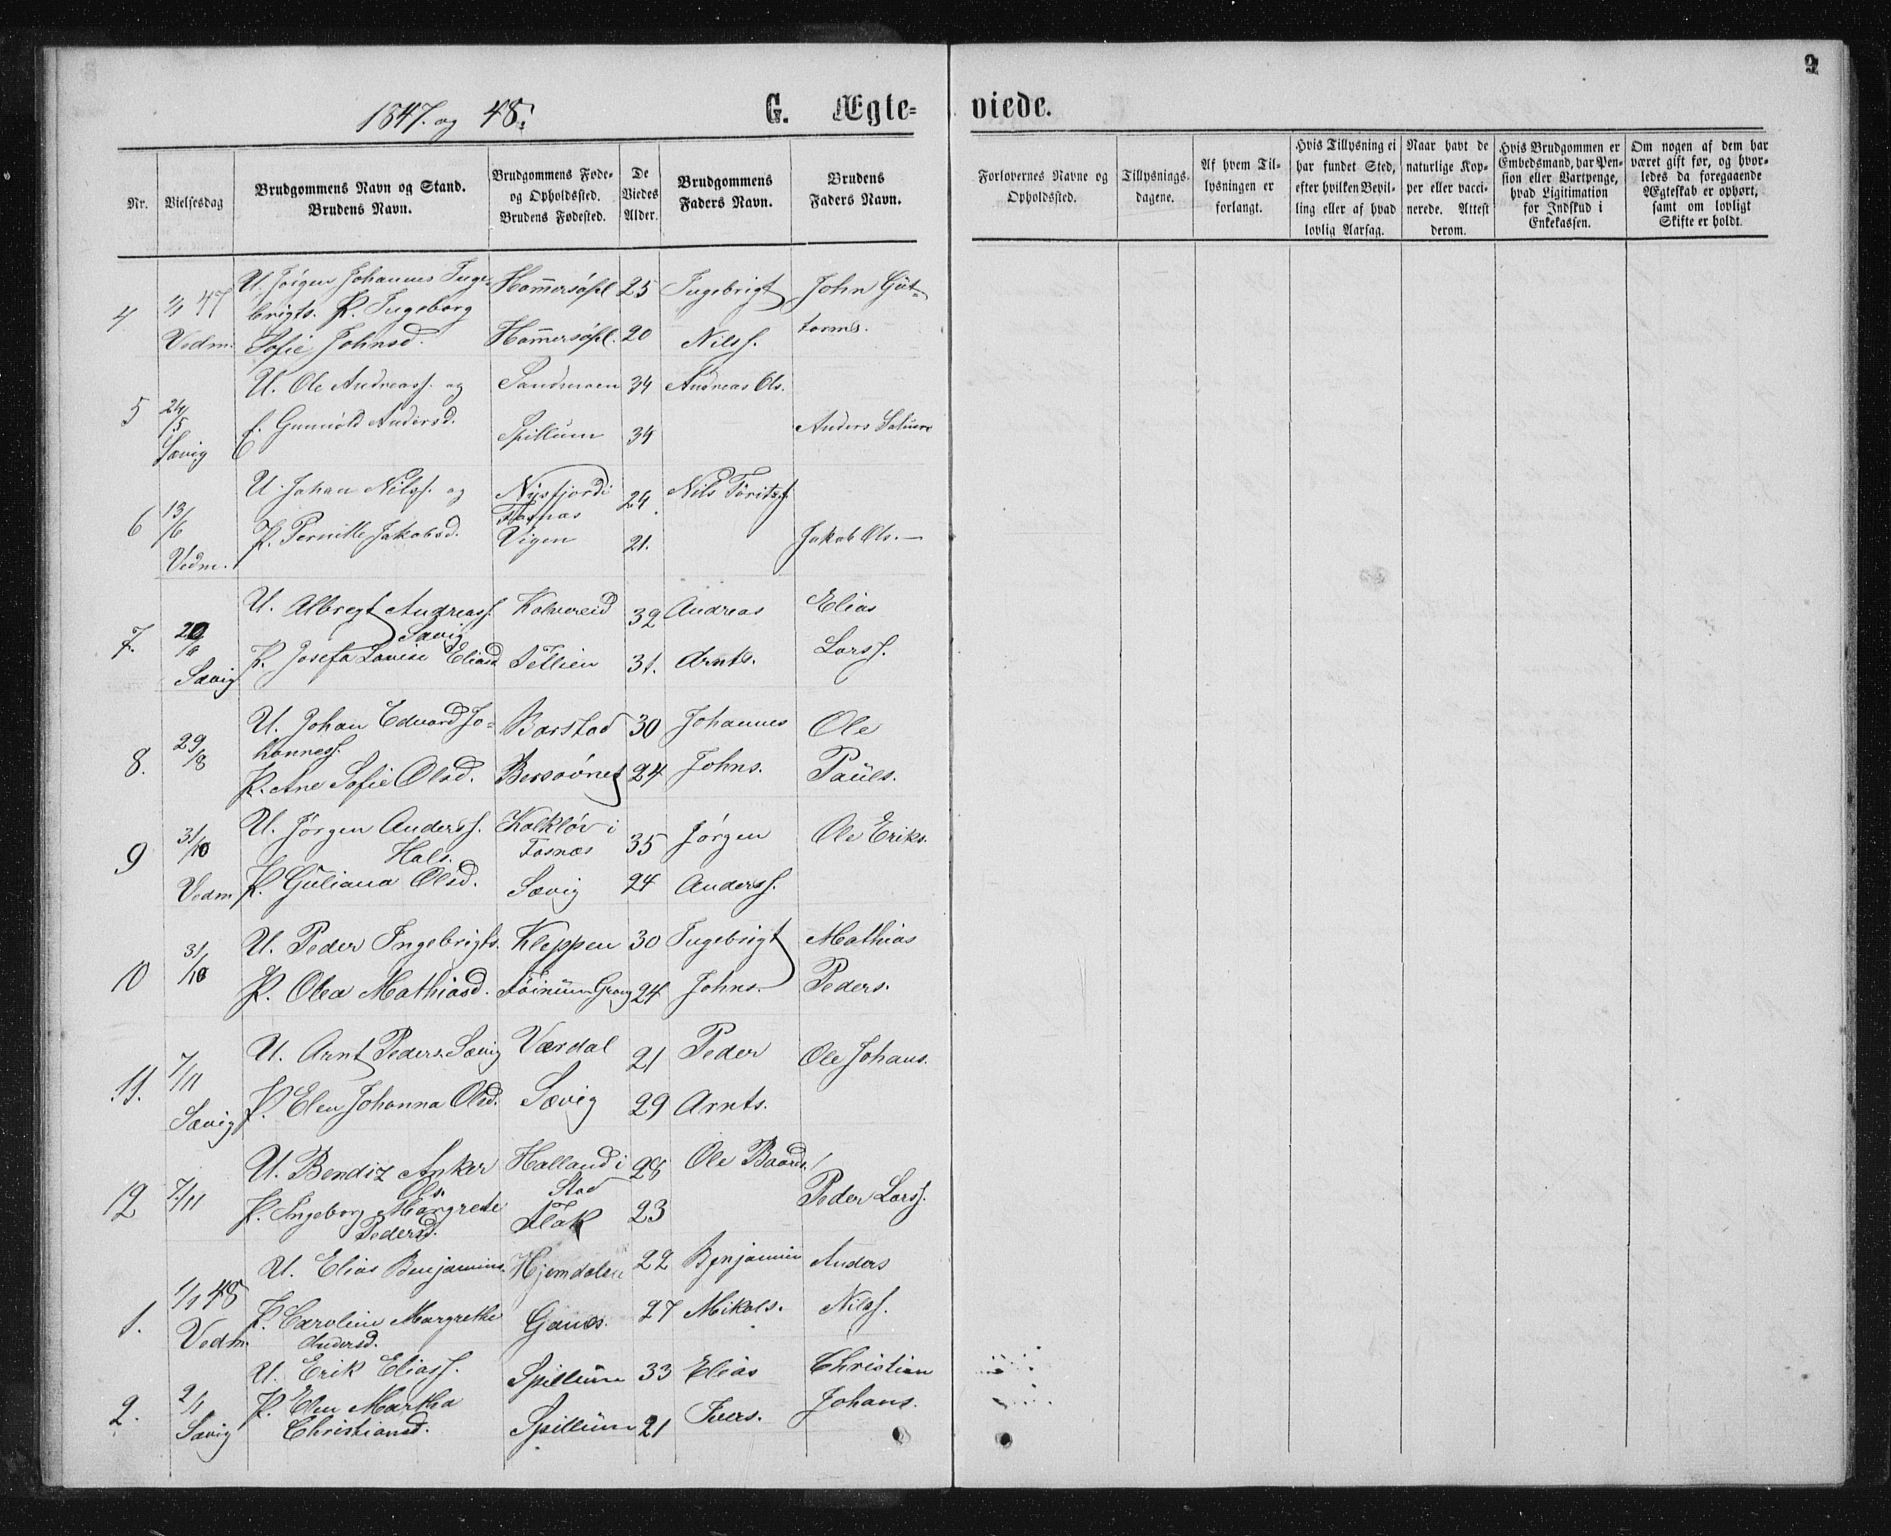 2
1847. og 48.
G. Ægte=
viede.
Nr.
Vielsesdag
Brudgommens Navn og Stand.
Brudens Navn.
Brudgommens Føde-
og Opholdssted.
Brudens Fødested.
De
Viedes
Alder.
Brudgommens
Faders Navn.
Brudens
Faders Navn.
Forlovernes Navne og
Opholdssted.
Tillysnings-
dagene.
Af hvem Til-
lysningen er
forlangt.
Hvis Tillysning ei
har fundet Sted,
efter hvilken Bevil-
ling eller af hvad
lovlig Aarsag.
Naar havt de
naturlige Kop-
per eller vacci-
nerede. Attest
derom.
Hvis Brudgommen er
Embedsmand, har Pen-
sion eller Vartpenge,
hvad Ligitimation
for Indskud i
Enkekassen.
Om nogen af dem har
været gift før, og hvor-
ledes da foregaaende
Ægteskab er ophørt,
samt om lovligt
Skifte er holdt.
4 1/1 47 U. Jørgen Johannes Inge- 25 Ingebrigt John Gut-
brigts. P. Ingeborg torms.
Vedm. Sofie Johnsd. 20 Nilss.
U. Ole Andreass. og Sandmoen 34 Andreas Ols.
5 24/5 f. Gunnild Andersd. Spillum 34 Anders
Sævig
U. Johan Nilss. og 24. Nils
Fosnæs
6 13/6 P. Pernille Jakobsd. Vigen 21. Jakob Ols. —
Vedm.
U. Albregt Andreass. Kolvereid 32 Andreas Elias
Sævig
7. 20/6 P. Josefa Lovise Eliasd 31. Arnts. Larss.
Sævig
U. Johan Edvard Jo- Barstad 30 Johannes Ole
8. 29/8 hanness.
P. Ane Sofie Olsd. 24 Johns. Pauls.
9 31/10 U. Jørgen Anderss. i 35 Jørgen Ole Eriks.
Hals. Fosnæs
Vedm P. Guliana Olsd. Sævig 24 Anderss.
10 31/10 U. Peder Ingebrigts. Kleppen 30 Ingebrigt Mathias
P. Olea Mathiasd. Grong 24 Johns. Peders.
11. 7/11 U. Arnt Peders. Sævig Værdal 21 Peder Ole Johans.
Sævig P. Elen Johanna Olsd. Sævig 29 Arnts.
U. Bendix Anker Halland i 28 Ole Baards.
Ols. Stod
12 7/11 P. Ingeborg Margrete Flak 23 Peder Larss.
Pedersd.
U. Elias Benjamins. Hjemdalen 22 Benjamin Anders
1. 1/1 48 P. Caroline Margrethe 27 Mikals. Nilss.
Vedm. Andersd.
U. Erik Eliass. Spillum 33 Elias Christian
2. 2/1 P. Elen Martha Johans.
Sævig Christiansd. Spillum 21 Ivers.